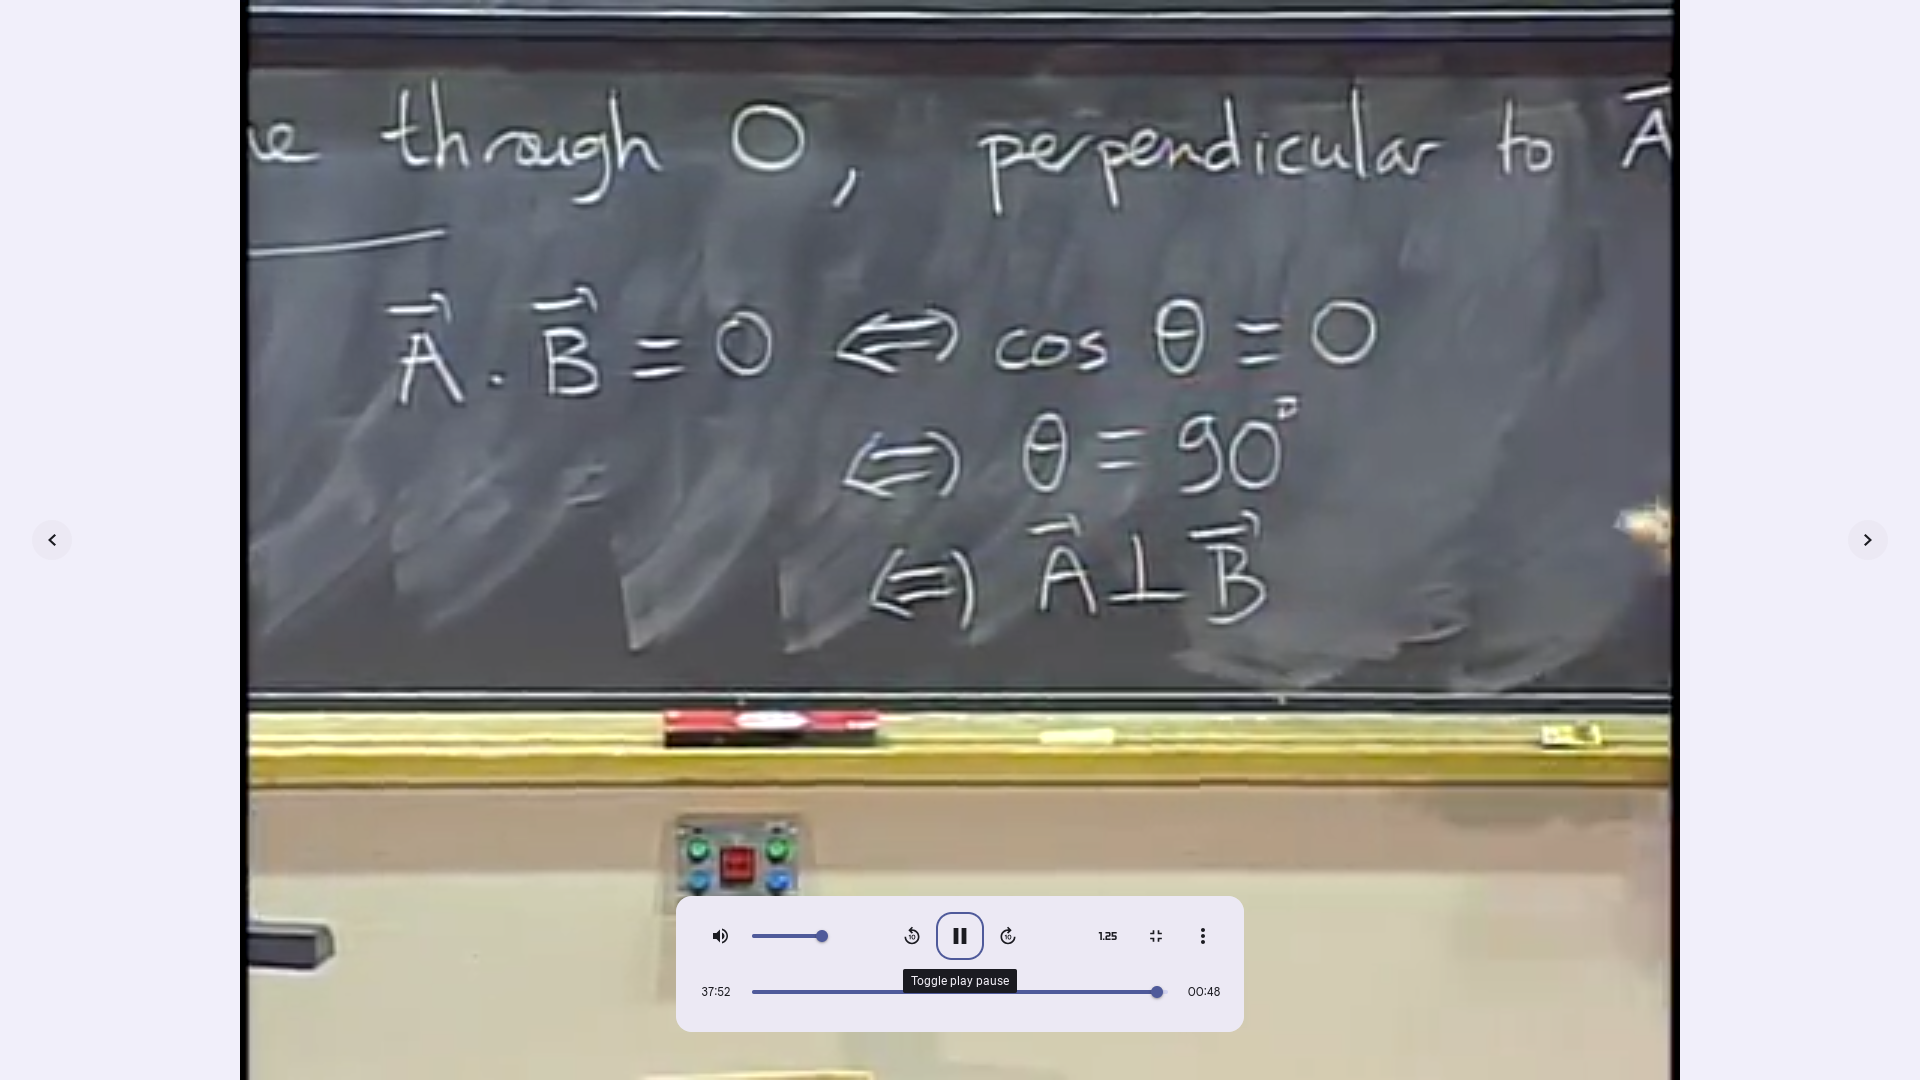 through O, perpendicular to A
A⃗ · B⃗ = 0 ⇔ cos θ = 0
⇔ θ = 90°
⇔ A⃗ ⊥ B⃗
10 10 1.25
Toggle play pause
37:52 00:48